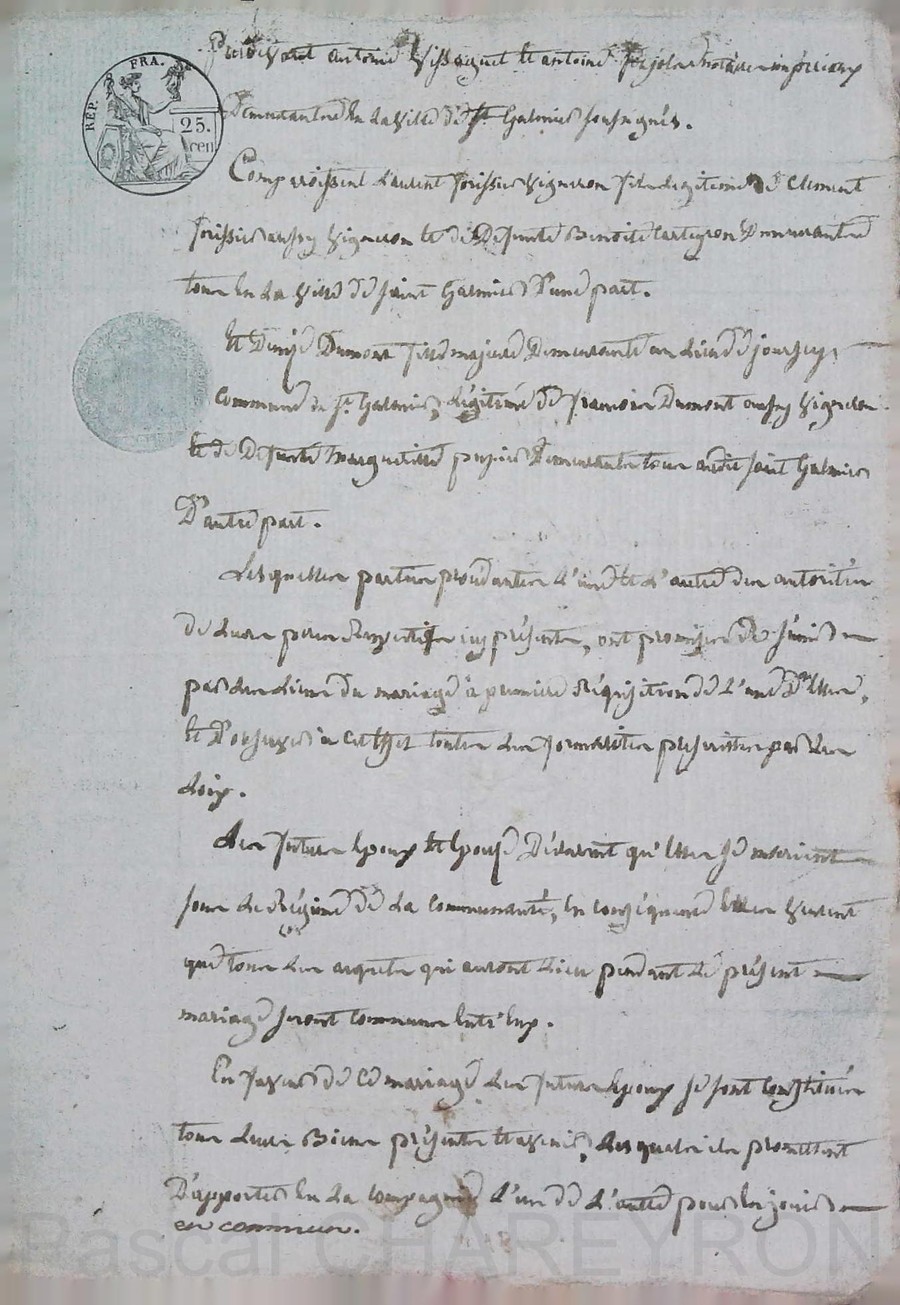 RÉP. FRA.
25.
cen
Pardevant antoine Vissaguet et antoine notaires impériaux
Demeurantes en la ville de St. Galmier soussignés.
Comparoissent Laurent forissier vigneron fils légitime de Clément
forissier aussy vigneron et de Defunte Benoite Demeurantes
tous en la ville de saint Galmier D'une part.
Et Denise Dumont fille majeure Demeurante au lieu de joursey,
Commune de St. Galmier, légitime de françois Dumont aussy vigneron
et de Defunte Margueritte Demeurante tous audit saint Galmier
D'autre part.
Lesquelles parties procédantes l'une et l'autre des autorités
de leurs peres respectifs icy présents, ont promises de s'unir
par les liens du mariage à premiere réquisition de l'une D'elles,
et D'observer à cet effet toutes les formalités prescrittes par les
Loix.
Les futurs epoux et epouse Déclarent qu'elles se marient
sous le Régime de la Communauté, en conséquence elles veulent
que tous les acquets qui auront lieu pendant le présent
mariage seront communs entr'eux.
En faveur de ce mariage les futurs epoux se sont constitués
tous leurs Biens présents et avenir, lesquels ils promettent
D'apporter en la compagnie l'un de l'autre pour en jouir
en commun.
Pascal CHAREYRON